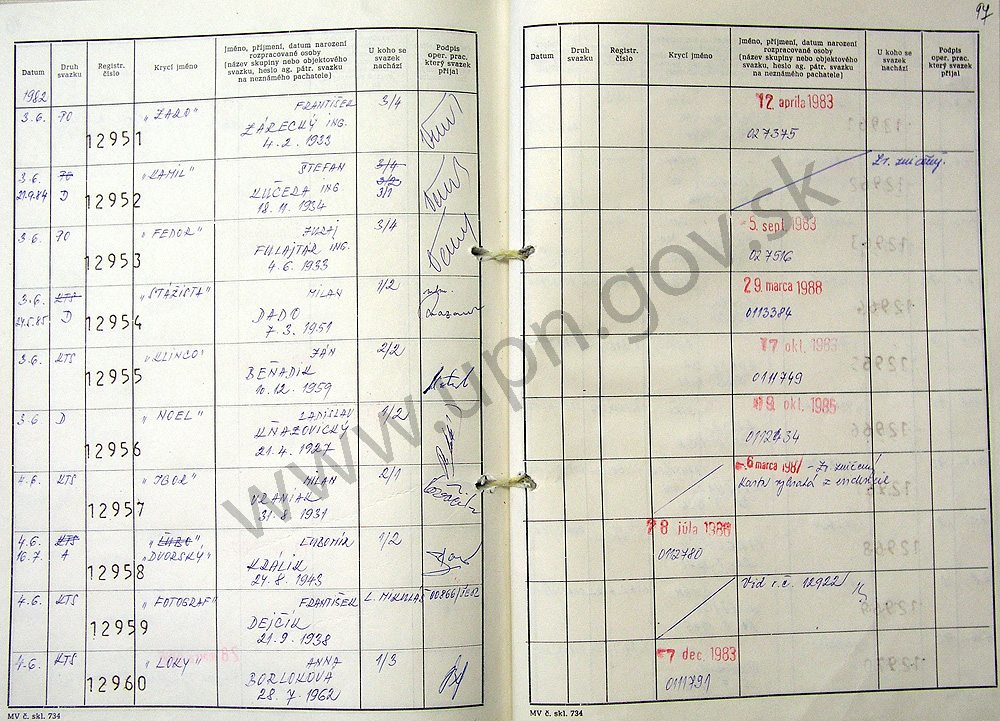 97
Datum
Druh svazku
Registr. číslo
Krycí jméno
Jméno, příjmení, datum narození
rozpracované osoby
(název skupiny nebo objektového
svazku, heslo ag. pátr. svazku
na neznámého pachatele)
U koho se svazek nachází
Podpis oper. prac. který svazek přijal
Datum
Druh svazku
Registr. číslo
Krycí jméno
Jméno, příjmení, datum narození
rozpracované osoby
(název skupiny nebo objektového
svazku, heslo ag. pátr. svazku
na neznámého pachatele)
U koho se svazek nachází
Podpis oper. prac. který svazek přijal
1982
3.6. PO 12951 "ŽARO" FRANTIŠEK 3/4
ZÁRECKÝ ING.
4.2.1933
12. apríla 1983
027375
3.6. PO "KAMIL" ŠTEFAN 3/4
21.9.84 D 12952 KUČERA ING 3/2
18.11.1934 3/1
Zv. zničený.
3.6. PO 12953 "FEDOR" JURAJ 3/4
FULAJTÁR ING.
4.6.1933
-5. sept. 1983
027516
3.6. KTS "STÁŽISTA" MILAN 1/2
24.5.85 D 12954 DADO
7.3.1951
29. marca 1988
0113384
3.6. KTS 12955 "KLINCO" JÁN 2/2
BEŇADIK
10.12.1959
17 okt. 1983
0111749
3.6. D 12956 "NOEL" LADISLAV 1/2
KŇAZOVICKÝ
21.4.1927
9. okt. 1985
0112434
4.6. KTS 12957 "IGOR" MILAN 2/1
VRANIAK
31.8.1931
-6 marca 1987 - Zv. zničený
Karta vybratá z evidencie
4.6. KTS "ĽUBO" ĽUBOMÍR 1/2
16.7. A 12958 "DVORSKÝ" KRÁLIK
24.8.1943
28 júla 1986
0112780
4.6. KTS 12959 "FOTOGRAF" FRANTIŠEK L. MIKULÁŠ
DEJČÍK
21.9.1938
Vid r.č. 12922
4.6. KTS 12960 "LOKY" ANNA 1/3
BORLOKOVÁ
28.7.1962
-7 dec. 1983
0111791
MV č. skl. 734
MV č. skl. 734
www.upn.gov.sk